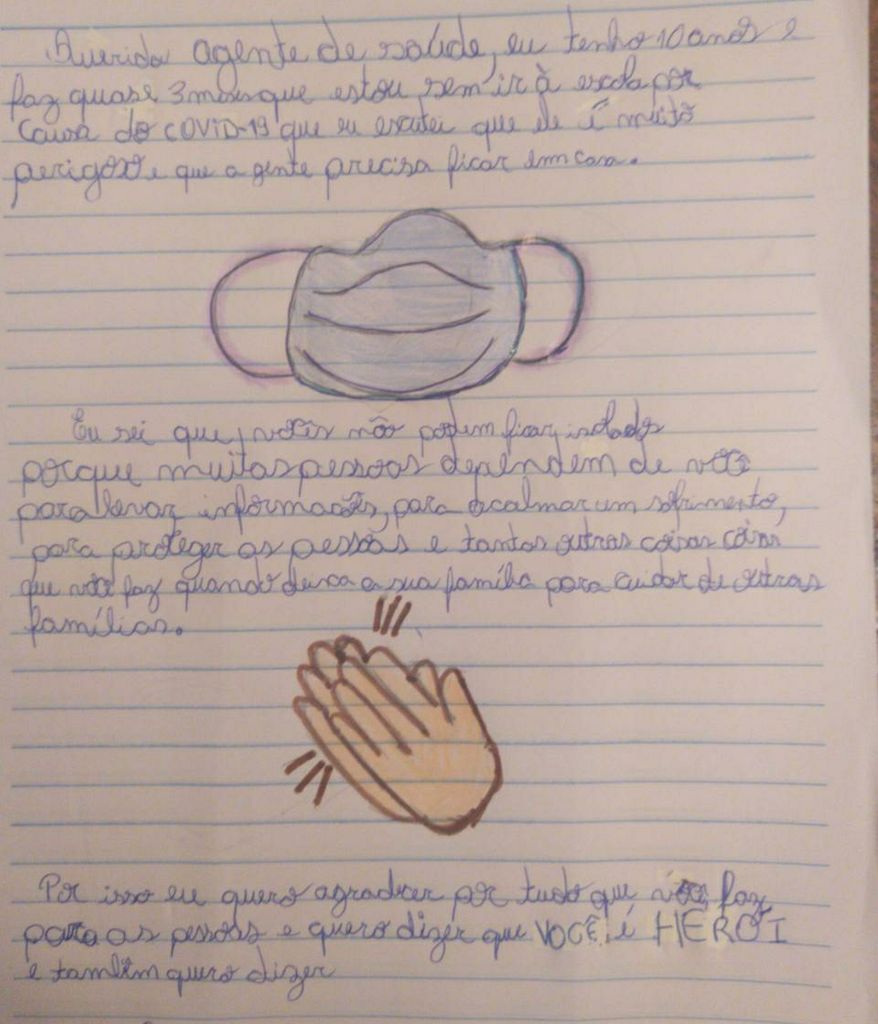 Querida agente de saúde, eu tenho 10 anos e
faz quase 3 meses que estou sem ir à escola por
causa do COVID-19 que eu escutei que ele é muito
perigoso e que a gente precisa ficar em casa.
Eu sei que vocês não podem ficar isolados
porque muitas pessoas dependem de você
para levar informações, para acalmar um sofrimento,
para proteger as pessoas e tantas outras coisas coisas
que você faz quando deixa a sua família para cuidar de outras
famílias.
Por isso eu quero agradecer por tudo que você faz
para as pessoas e quero dizer que VOCÊ é HEROI
e também quero dizer